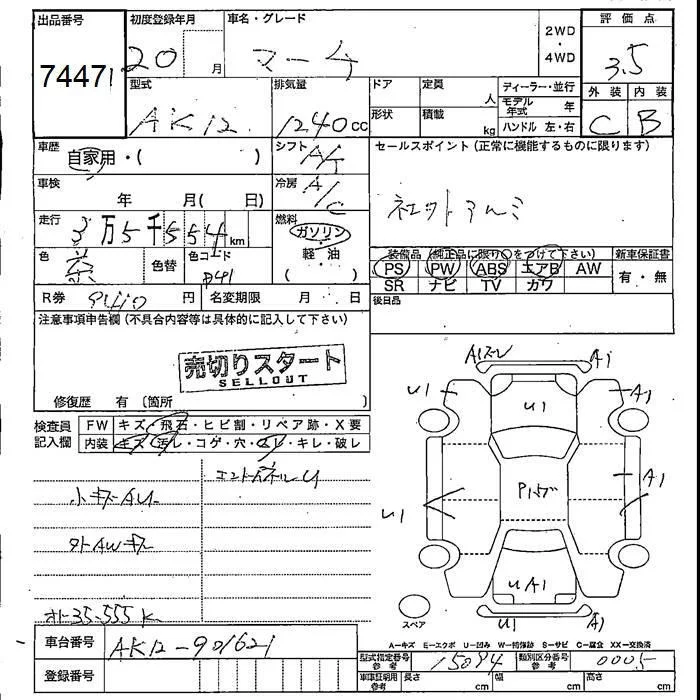 出品番号 初度登録年月 車名・グレード 評価点
2WD
・
4WD
7447 20 月 マーチ 3.5
型式 排気量 ドア 定員 人 ディーラー・並行 外装 内装
モデル年式 年
AK12 1240cc 形状 積載 kg ハンドル 左・右 C B
車歴 自家用・( ) シフト A/T セールスポイント (正常に機能するものに限ります)
車検 年 月( 日) 冷房 A/C
走行 3万5千554km 燃料 ガソリン・軽油・( )
色 茶 色替 色コード
装備品 (純正品に限り○をつけて下さい) 新車保証書
PS PW ABS エアB AW 有・無
SR ナビ TV カワ
R券 9440円 名変期限 月 日 後日品
注意事項申告欄 (不具合内容等は具体的に記入して下さい)
売切りスタート
SELLOUT
修復歴 有 (箇所 )
検査員記入欄 FW キズ・飛石・ヒビ割・リペア跡・X要
内装 キズ・汚レ・コゲ・穴・スレ・キレ・破レ
エンドパネルU
小キズAU
外AWキズ
オドー35,555K
A1ズレ A1
U1 U1 A1
U1 A1
UA1
U1 A1
スペア
A−キズ E−エクボ U−凹み W−補修跡 S−サビ C−腐食 XX−交換済
車台番号 AK12-901621
型式指定番号 参考 15094 類別区分番号 参考 0005
登録番号
車車証明用 参考 長さ cm 幅 cm 高さ cm